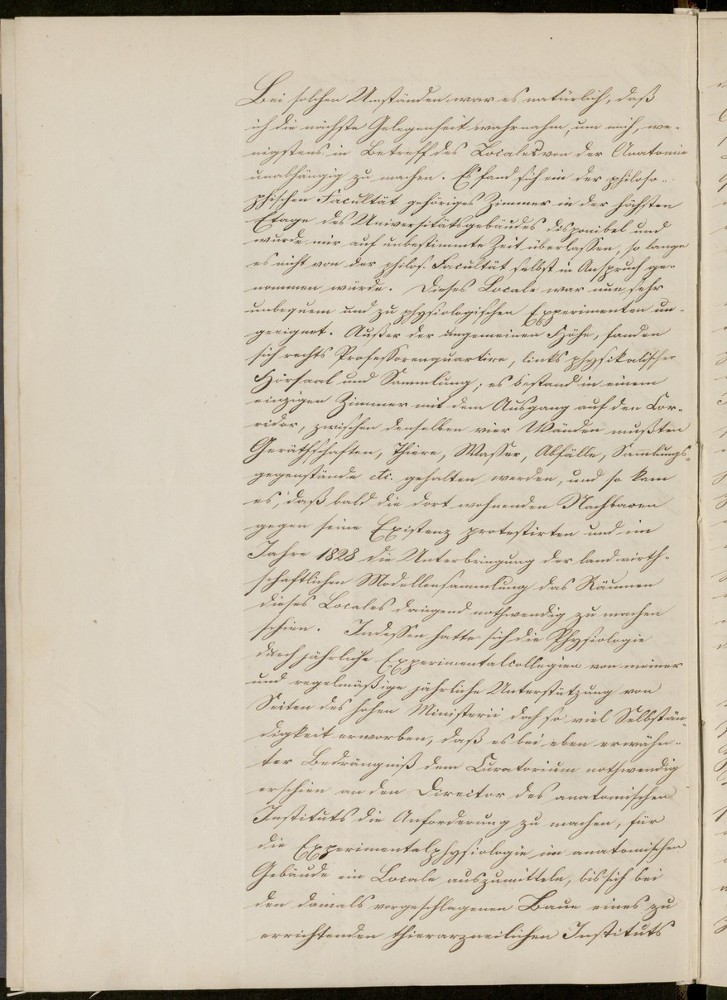 Bei solchen Umständen war es natürlich, daß
ich die nächste Gelegenheit wahrnahm, um mich, we-
nigstens in Betreff des Locales von der Anatomie
unabhängig zu machen. Es fand sich ein der philoso-
phischen Facultät gehöriges Zimmer in der höchsten
Etage des Universitätsgebäudes disponibel und
wurde mir auf unbestimmte Zeit überlassen, so lange
es nicht von der philos. Facultät selbst in Anspruch ge-
nommen würde. Dieses Locale war nun sehr
unbequem und zu physiologischen Experimenten un-
geeignet. Außer der ungemeinen Höhe, fanden
sich rechts Professorenquartire, links physikalischer
Hörsaal und Sammlung; es bestand in einem
einzigen Zimmer mit dem Ausgang auf den Cor-
ridor, zwischen denselben vier Wänden mußten
Geräthschaften, Thiere, Wasser, Abfälle, Samlungs-
gegenstände etc. gehalten werden, und so kam
es, daß bald die dort wohnenden Nachbaren
gegen seine Existenz protestirten und im
Jahre 1828 die Unterbringung der landwirth-
schaftlichen Modellensammlung das Räumen
dieses Locales dringend nothwendig zu machen
schien. Indessen hatte sich die Physiologie
durch jährliche Experimentalcollegien von meiner
und regelmäßige jährliche Unterstützung von
Seiten des hohen Ministerii doch so viel Selbstän-
digkeit erworben, daß es bei eben erwähn-
ter Bedrängniß dem Curatorium nothwendig
erschien an den Director des anatomischen
Instituts die Anforderung zu machen, für
die Experimentalphysiologie im anatomischen
Gebäude ein Locale auszumitteln, bis sich bei
den damals vorgeschlagenen Baue eines zu
errichtenden thierarzneilichen Instituts